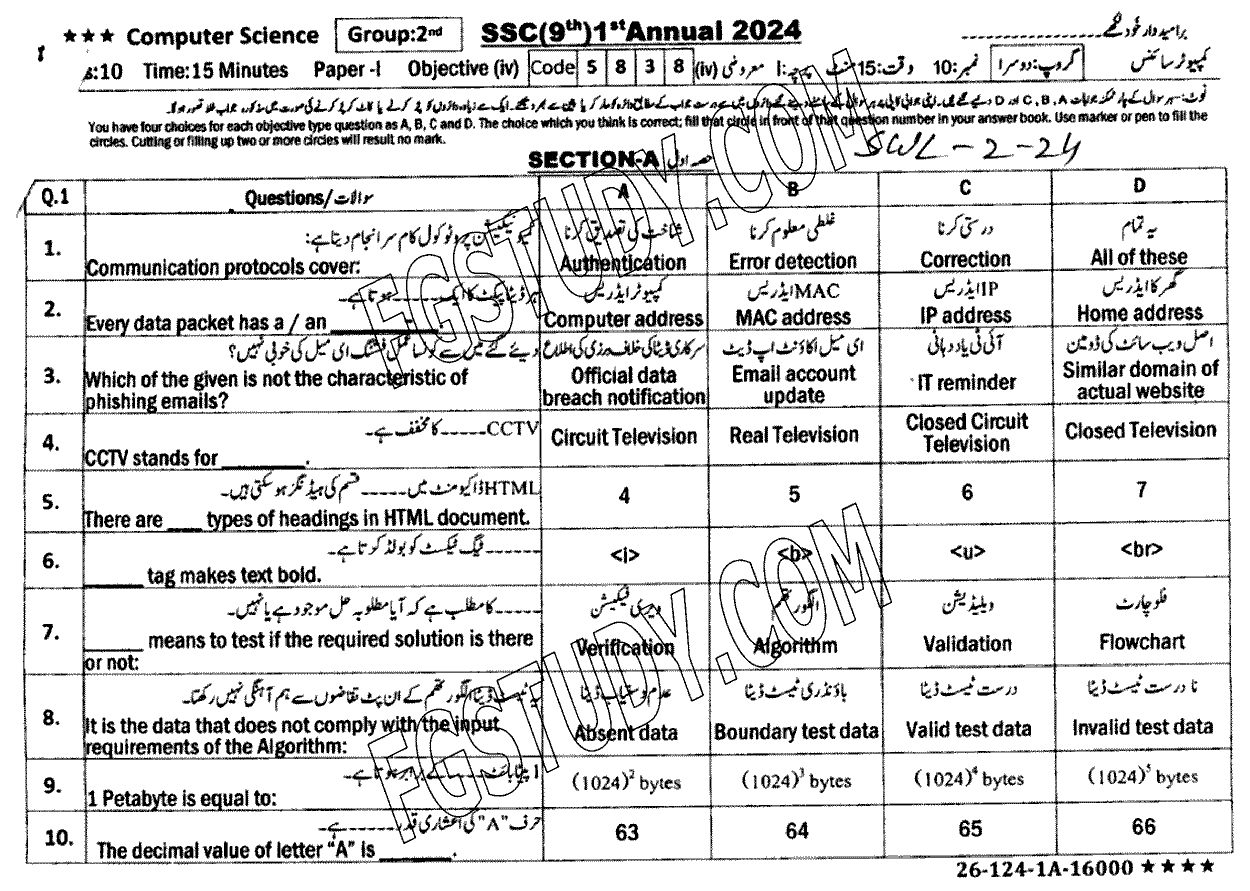 ★★★ Computer Science Group:2nd SSC(9th)1st Annual 2024
s:10 Time:15 Minutes Paper -I Objective (iv) Code 5 8 3 8 (iv) معروضی پرچہ: I وقت:15 منٹ نمبر:10 گروپ:دوسرا کمپیوٹر سائنس
You have four choices for each objective type question as A, B, C and D. The choice which you think is correct; fill that circle in front of that question number in your answer book. Use marker or pen to fill the
circles. Cutting or filling up two or more circles will result no mark.
SECTION-A حصہ اول
SWL-2-24
Q.1 Questions/سوالات A B C D
1. کمیونیکیشن پروٹوکول کام سرانجام دیتا ہے: شناخت کی تصدیق کرنا غلطی معلوم کرنا درستی کرنا یہ تمام
Communication protocols cover: Authentication Error detection Correction All of these
2. ہر ڈیٹا پیکٹ کا ایک ----- ہوتا ہے۔ کمپیوٹر ایڈریس MAC ایڈریس IP ایڈریس گھر کا ایڈریس
Every data packet has a / an ________. Computer address MAC address IP address Home address
3. دیئے گئے میں سے کونسا عمل فشنگ ای میل کی خوبی نہیں؟ سرکاری ڈیٹا کی خلاف ورزی کی اطلاع ای میل اکاؤنٹ اپ ڈیٹ آئی ٹی یاد دہانی اصل ویب سائٹ کی ڈومین
Which of the given is not the characteristic of phishing emails? Official data breach notification Email account update IT reminder Similar domain of actual website
4. CCTV ----- کا مخفف ہے۔
CCTV stands for ________. Circuit Television Real Television Closed Circuit Television Closed Television
5. HTML ڈاکیومنٹ میں ----- قسم کی ہیڈنگز ہو سکتی ہیں۔
There are ____ types of headings in HTML document. 4 5 6 7
6. ----- ٹیگ ٹیکسٹ کو بولڈ کرتا ہے۔
______ tag makes text bold. <i> <b> <u> <br>
7. ----- کا مطلب ہے کہ آیا مطلوبہ حل موجود ہے یا نہیں۔ ویری فیکیشن الگورتھم ویلیڈیشن فلوچارٹ
______ means to test if the required solution is there or not: Verification Algorithm Validation Flowchart
8. یہ ٹیسٹ ڈیٹا الگورتھم کے ان پٹ تقاضوں سے ہم آہنگی نہیں رکھتا۔ عدم دستیاب ڈیٹا باؤنڈری ٹیسٹ ڈیٹا درست ٹیسٹ ڈیٹا نا درست ٹیسٹ ڈیٹا
It is the data that does not comply with the input requirements of the Algorithm: Absent data Boundary test data Valid test data Invalid test data
9. 1 پیٹا بائٹ ----- کے برابر ہوتا ہے۔
1 Petabyte is equal to: (1024)² bytes (1024)³ bytes (1024)⁴ bytes (1024)⁵ bytes
10. حرف "A" کی اعشاری قدر ----- ہے۔
The decimal value of letter "A" is ________. 63 64 65 66
26-124-1A-16000 ★★★★
FGSTUDY.COM
FGSTUDY.COM